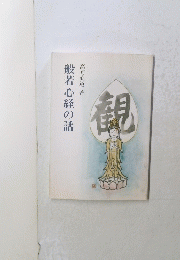 般若心経の話
観